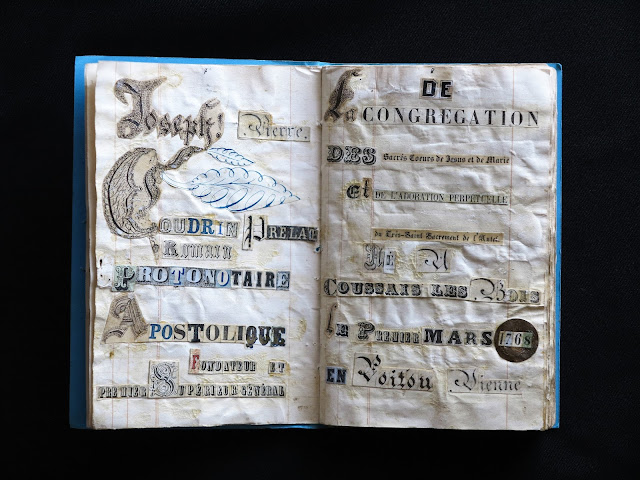 Joseph! Pierre.
COUDRIN PRELAT
ROMAIN
PROTONOTAIRE
APOSTOLIQUE
FONDATEUR ET
PREMIER SUPÉRIEUR GÉNÉRAL
DE
La CONGREGATION
DES Sacrés Coeurs de Jesus et de Marie
Et DE L'ADORATION PERPETUELLE
du Très-Saint Sacrement de l'Autel.
Né A
COUSSAIS LES Bois
Le PREMIER MARS 1768
EN Poitou Vienne